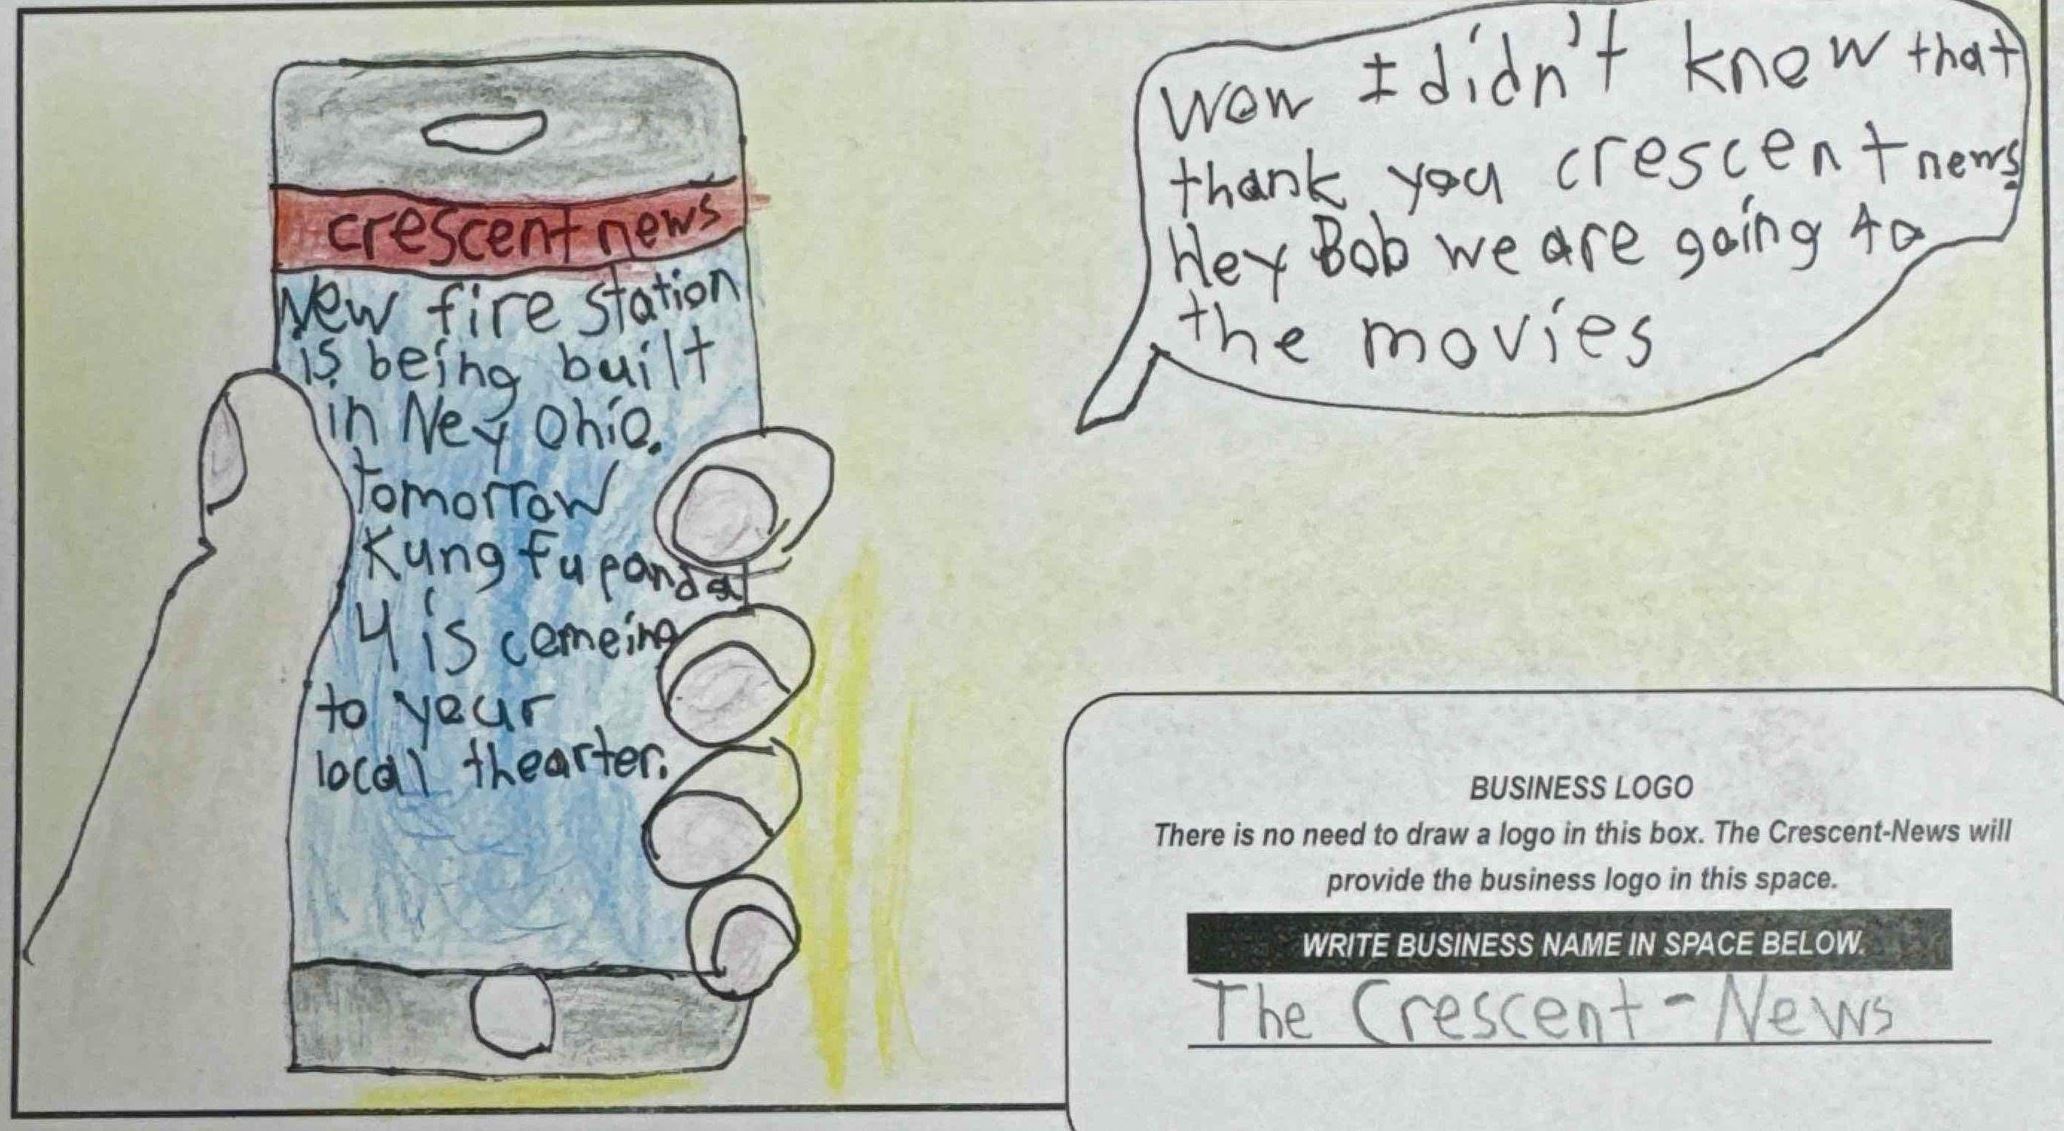 crescent news
New fire station
is being built
in Ney Ohio.
tomorrow
Kung fu panda
4 is comeing
to your
local thearter.
Wow I didn't know that
thank you crescent news.
Hey Bob we are going to
the movies
BUSINESS LOGO
There is no need to draw a logo in this box. The Crescent-News will
provide the business logo in this space.
WRITE BUSINESS NAME IN SPACE BELOW.
The Crescent-News